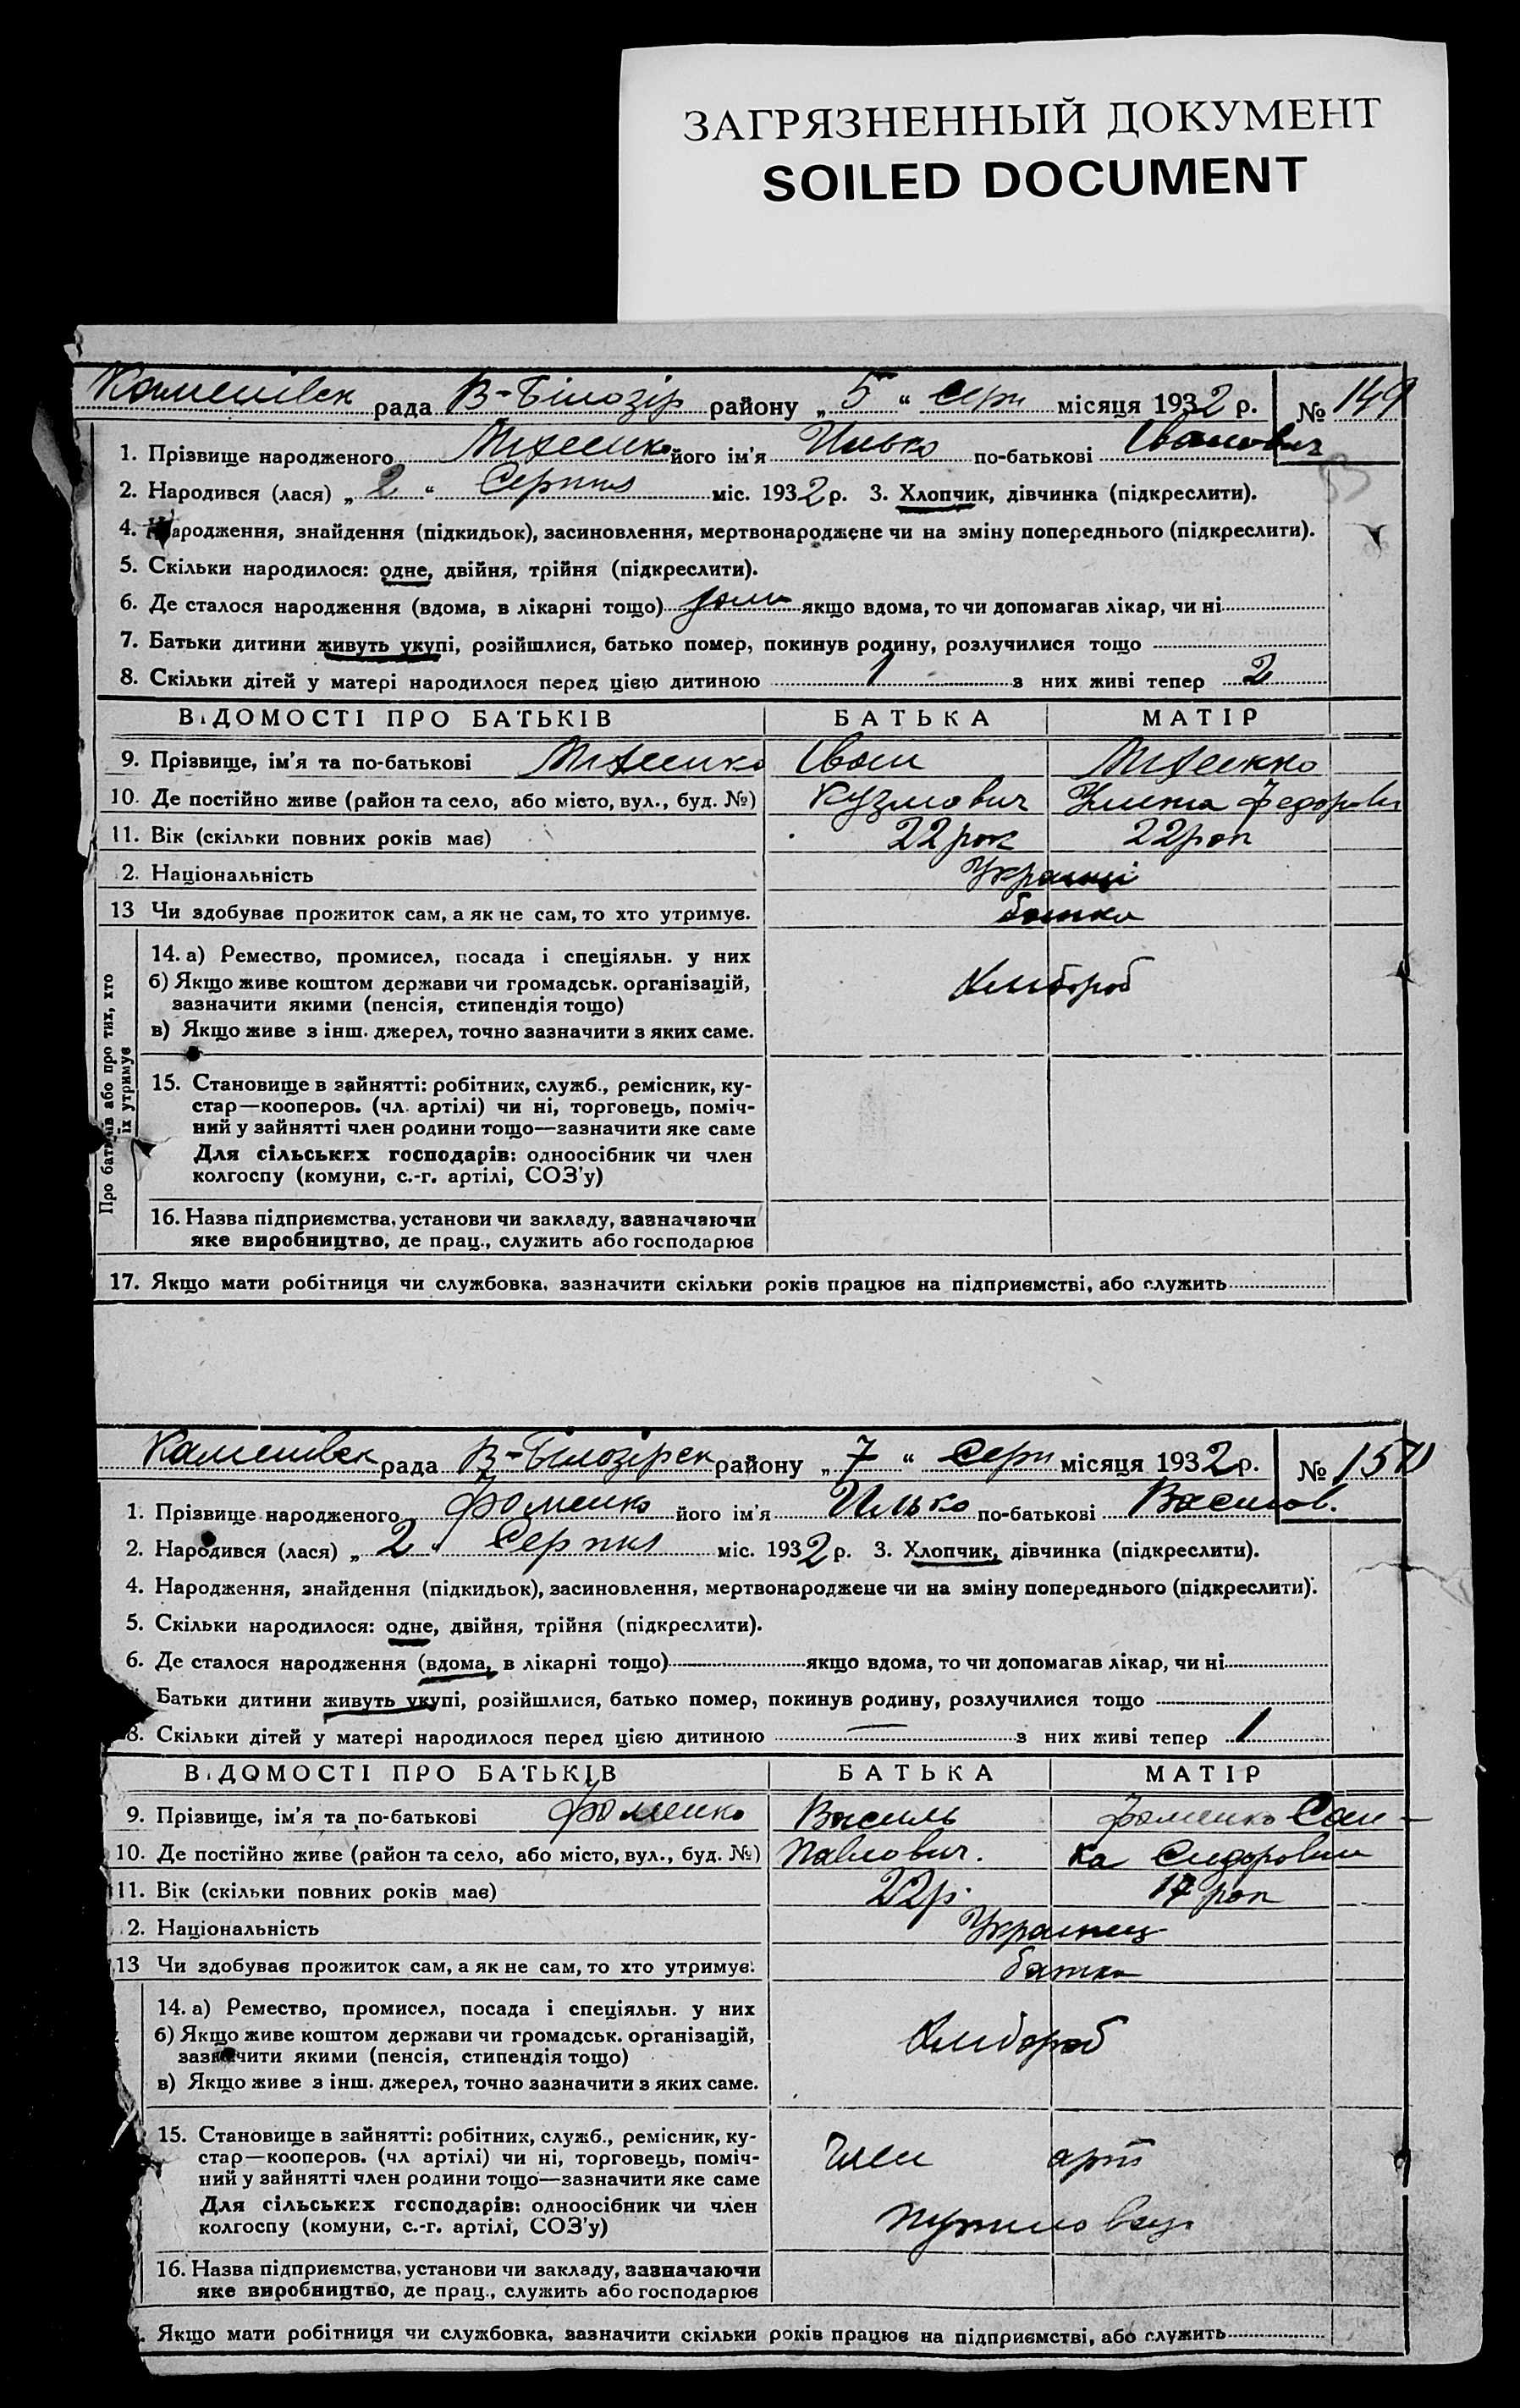 ЗАГРЯЗНЕННЫЙ ДОКУМЕНТ
SOILED DOCUMENT
рада В-Білозір району „5“ Серп місяця 1932 р. № 149
1. Прізвище народженого його ім'я Илько по-батькові Іванович
2. Народився (лася) „2“ Серпня міс. 1932 р. 3. Хлопчик, дівчинка (підкреслити).
4. Народження, знайдення (підкидьок), засиновлення, мертвонароджене чи на зміну попереднього (підкреслити).
5. Скільки народилося: одне, двійня, трійня (підкреслити).
6. Де сталося народження (вдома, в лікарні тощо) якщо вдома, то чи допомагав лікар, чи ні
7. Батьки дитини живуть укупі, розійшлися, батько помер, покинув родину, розлучилися тощо
8. Скільки дітей у матері народилося перед цією дитиною 1 з них живі тепер 2
ВІДОМОСТІ ПРО БАТЬКІВ БАТЬКА МАТІР
9. Прізвище, ім'я та по-батькові Іван
10. Де постійно живе (район та село, або місто, вул., буд. №) Кузмович
11. Вік (скільки повних років має) 22 рок 22 рок
2. Національність Україні
13 Чи здобуває прожиток сам, а як не сам, то хто утримує. батько
Про батьків або про тих, хто їх утримує
14. а) Ремество, промисел, посада і спеціяльн. у них
б) Якщо живе коштом держави чи громадськ. організацій,
зазначити якими (пенсія, стипендія тощо)
Хлибороб
в) Якщо живе з інш. джерел, точно зазначити з яких саме.
15. Становище в зайнятті: робітник, служб., ремісник, ку-
стар—кооперов. (чл. артілі) чи ні, торговець, поміч-
ний у зайнятті член родини тощо—зазначити яке саме
Для сільських господарів: одноосібник чи член
колгоспу (комуни, с.-г. артілі, СОЗ'у)
16. Назва підприємства, установи чи закладу, зазначаючи
яке виробництво, де прац., служить або господарює
17. Якщо мати робітниця чи службовка, зазначити скільки років працює на підприємстві, або служить
рада В-Білозірск району „7“ Серп місяця 1932 р. № 150
1. Прізвище народженого Фоменко його ім'я Илько по-батькові Василов.
2. Народився (лася) „2“ Серпня міс. 1932 р. 3. Хлопчик, дівчинка (підкреслити).
4. Народження, знайдення (підкидьок), засиновлення, мертвонароджене чи на зміну попереднього (підкреслити).
5. Скільки народилося: одне, двійня, трійня (підкреслити).
6. Де сталося народження (вдома, в лікарні тощо) якщо вдома, то чи допомагав лікар, чи ні
Батьки дитини живуть укупі, розійшлися, батько помер, покинув родину, розлучилися тощо
8. Скільки дітей у матері народилося перед цією дитиною — з них живі тепер 1
ВІДОМОСТІ ПРО БАТЬКІВ БАТЬКА МАТІР
9. Прізвище, ім'я та по-батькові Фоменко Василь Фоменко Сан-
10. Де постійно живе (район та село, або місто, вул., буд. №) Павлович. ка Сидоровна
11. Вік (скільки повних років має) 22 р. 17 рок
2. Національність Украинец
13 Чи здобуває прожиток сам, а як не сам, то хто утримує. батько
14. а) Ремество, промисел, посада і спеціяльн. у них
б) Якщо живе коштом держави чи громадськ. організацій,
зазначити якими (пенсія, стипендія тощо)
Хлибороб
в) Якщо живе з інш. джерел, точно зазначити з яких саме.
15. Становище в зайнятті: робітник, служб., ремісник, ку-
стар—кооперов. (чл артілі) чи ні, торговець, поміч-
член арт
ний у зайнятті член родини тощо—зазначити яке саме
Для сільських господарів: одноосібник чи член
колгоспу (комуни, с.-г. артілі, СОЗ'у)
16. Назва підприємства, установи чи закладу, зазначаючи
яке виробництво, де прац., служить або господарює
Якщо мати робітниця чи службовка, зазначити скільки років працює на підприємстві, або служить